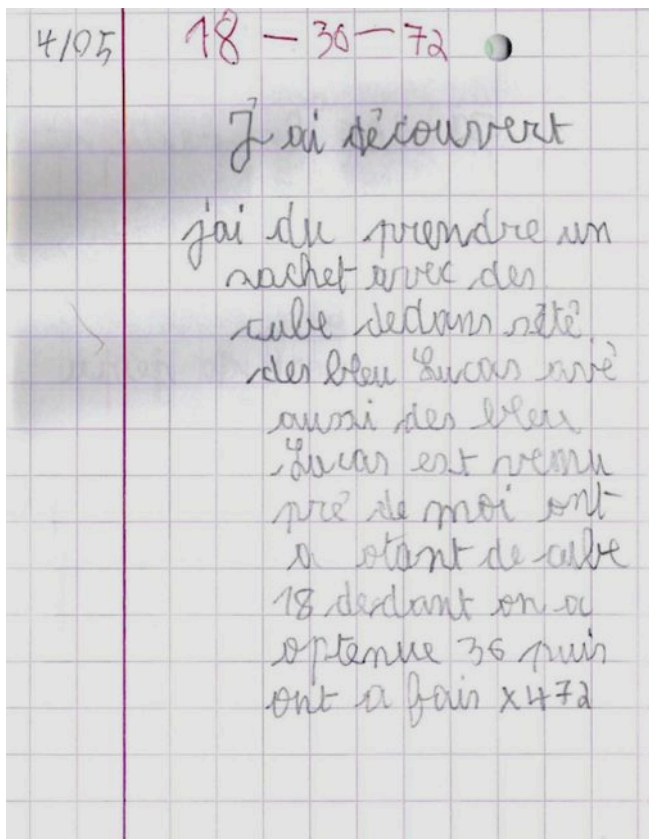 4/05 18 - 36 - 72
J'ai découvert
j'ai du prendre un
sachet avec des
cube dedans sété
des bleu Lucas avé
aussi des bleu
Lucas est venu
pré de moi ont
a otant de cube
18 dedant on a
optenue 36 puis
ont a fais x4 72